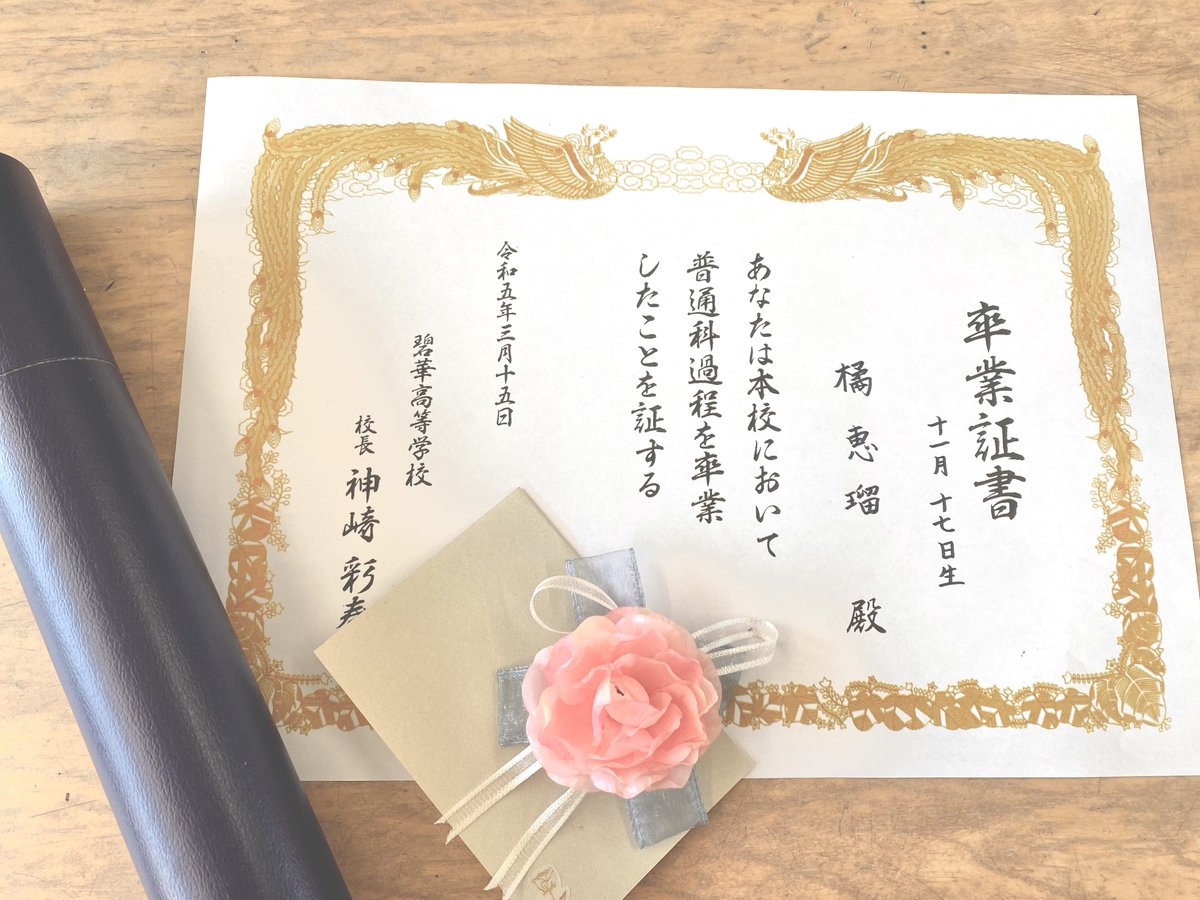 卒業証書
十一月 十七日生
橘 恵瑠 殿
あなたは本校において
普通科過程を卒業
したことを証する
令和五年三月十五日
碧華高等学校
校長 神崎 彩寿